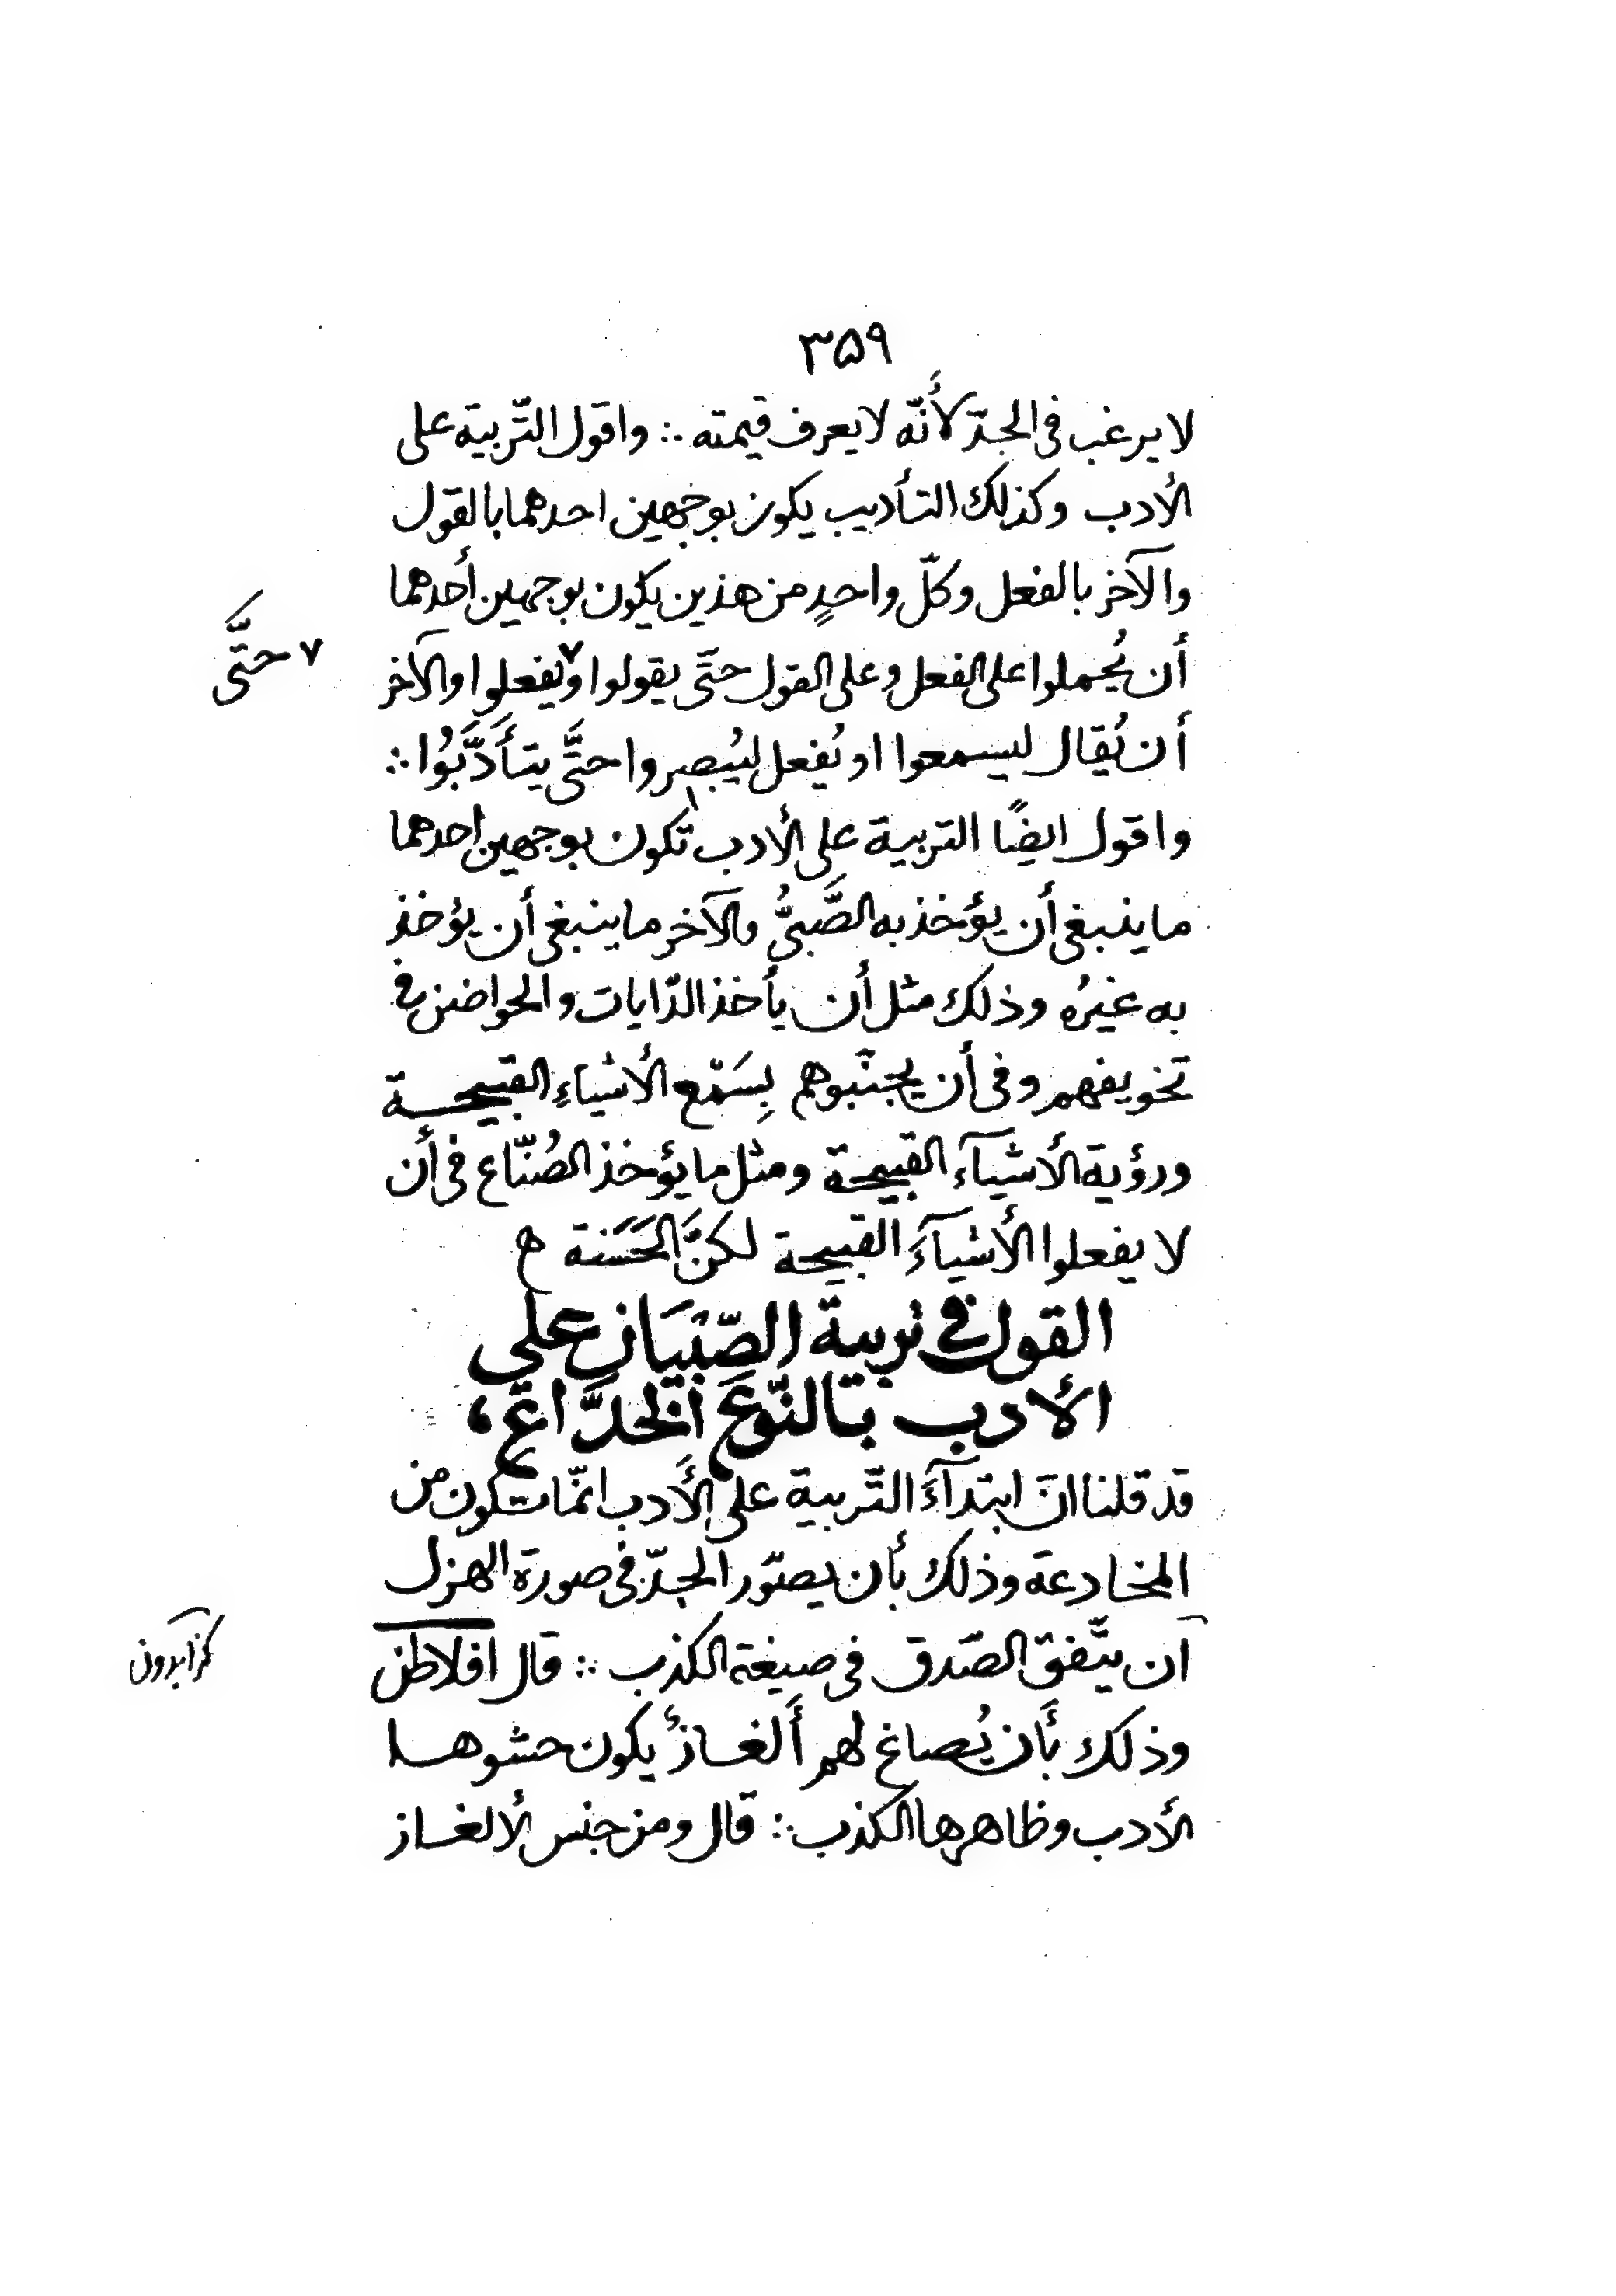 ۳۵۹
لا يرغب فى الجدّ لأَنّه لا يعرف قيمته ∴ واقول التّربية على
الأدب وكذلك التأديب يكون بوجهين احدهما بالقول
والآخر بالفعل وكلّ واحدٍ من هذين يكون بوجهين أحدهما
أن يُحملوا على الفعل وعلى القول حتّى يقولوا ٧ ويفعلوا والآخر
٧ حتَّى
أن يُقال ليسمعوا او يُفعل ليُبصروا حتَّى يتأَدَّبُوا ∴
واقول ايضًا التربية على الأدب تكون بوجهين احدهما
ما ينبغى أن يؤخذ به الصَّبىُّ والآخر ما ينبغى أن يؤخذ
به غيرُه وذلك مثل أن يأخذ الدّايات والحواضن فى
تخويفهم وفى أن يجنّبوهم بِسَمْع الأشياءِ القبيحة
ورؤية الأشيآء القبيحة ومثل ما يؤخذ الصُنّاع فى أن
لا يفعلوا الأشيآءَ القبيحة لكنَّ الحَسَنة ه
القول فى تربية الصّبْيَان على
الأدب بالنّوع الخدَّاع ،
قد قلنا انّ ابتدآءَ التّربية على الأَدب انّما تكون من
المخادعة وذلك بأن يصوّر الجدّ فى صورة الهزل
آن يتّفق الصّدق فى صيغة الكذب ∴ قال افلاطن
وذلك بأَن يُصاغ لهم أَلغازٌ يكون حشوها
الأدب وظاهرها الكذب ∴ قال ومن جنس الألغاز